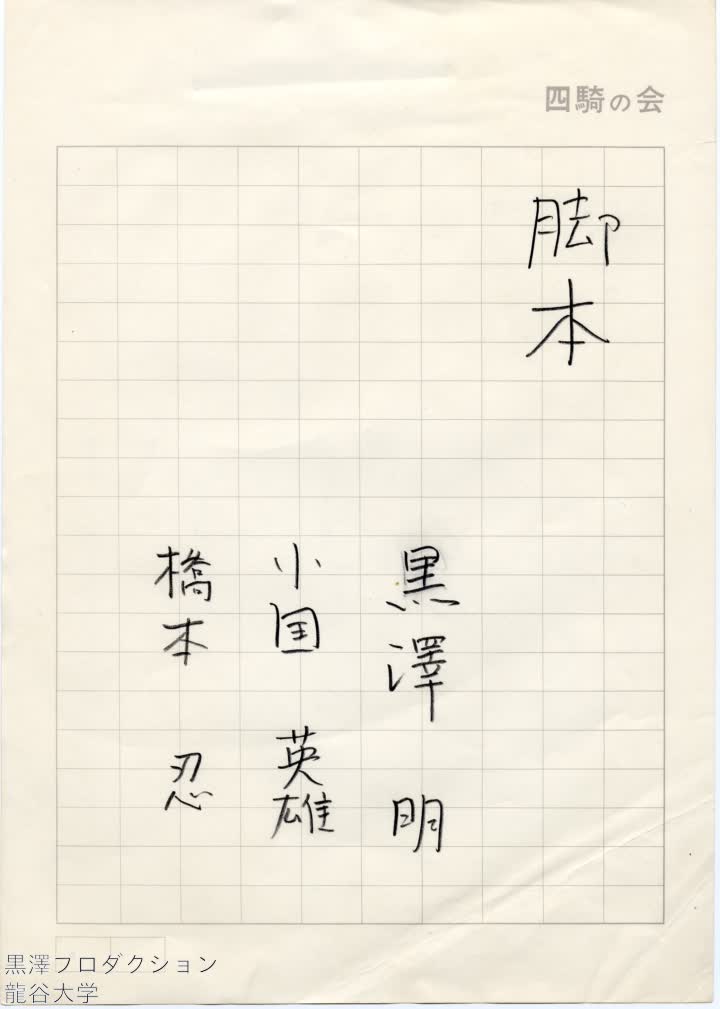 四騎の会
脚本
黒澤 明
小国 英雄
橋本 忍
黒澤プロダクション
龍谷大学